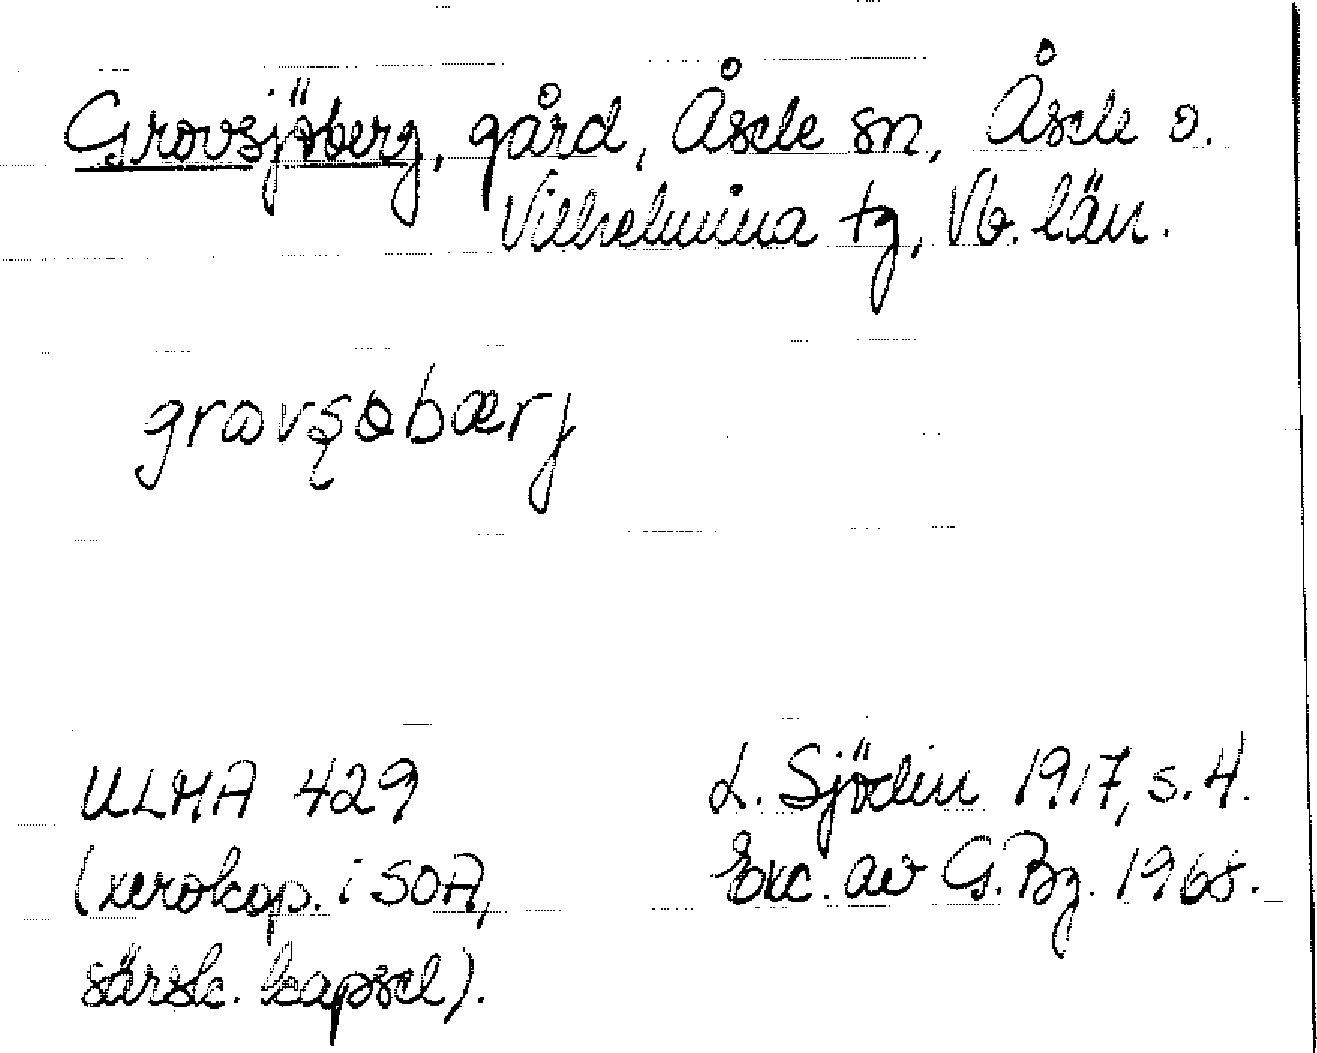 Grovsjöberg, gård, Åsele sn, Åsele o.
Vilhelmina tg, Vb. län.
L. Sjödin 1917, s. 4.
ULMA 429
Exc. av G. Bg. 1968.
(xerokop. i SOA,
särsk. kapsel).